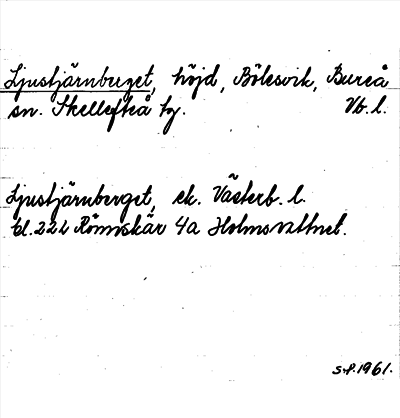 Ljustjärnberget, höjd, Bölesvik, Bureå
sn. Skellefteå tg. Vb. l.
Ljustjärnberget, ek. Västerb. l.
bl. 22L Rönnskär 4a Holmsvattnet.
s.f. 1961.